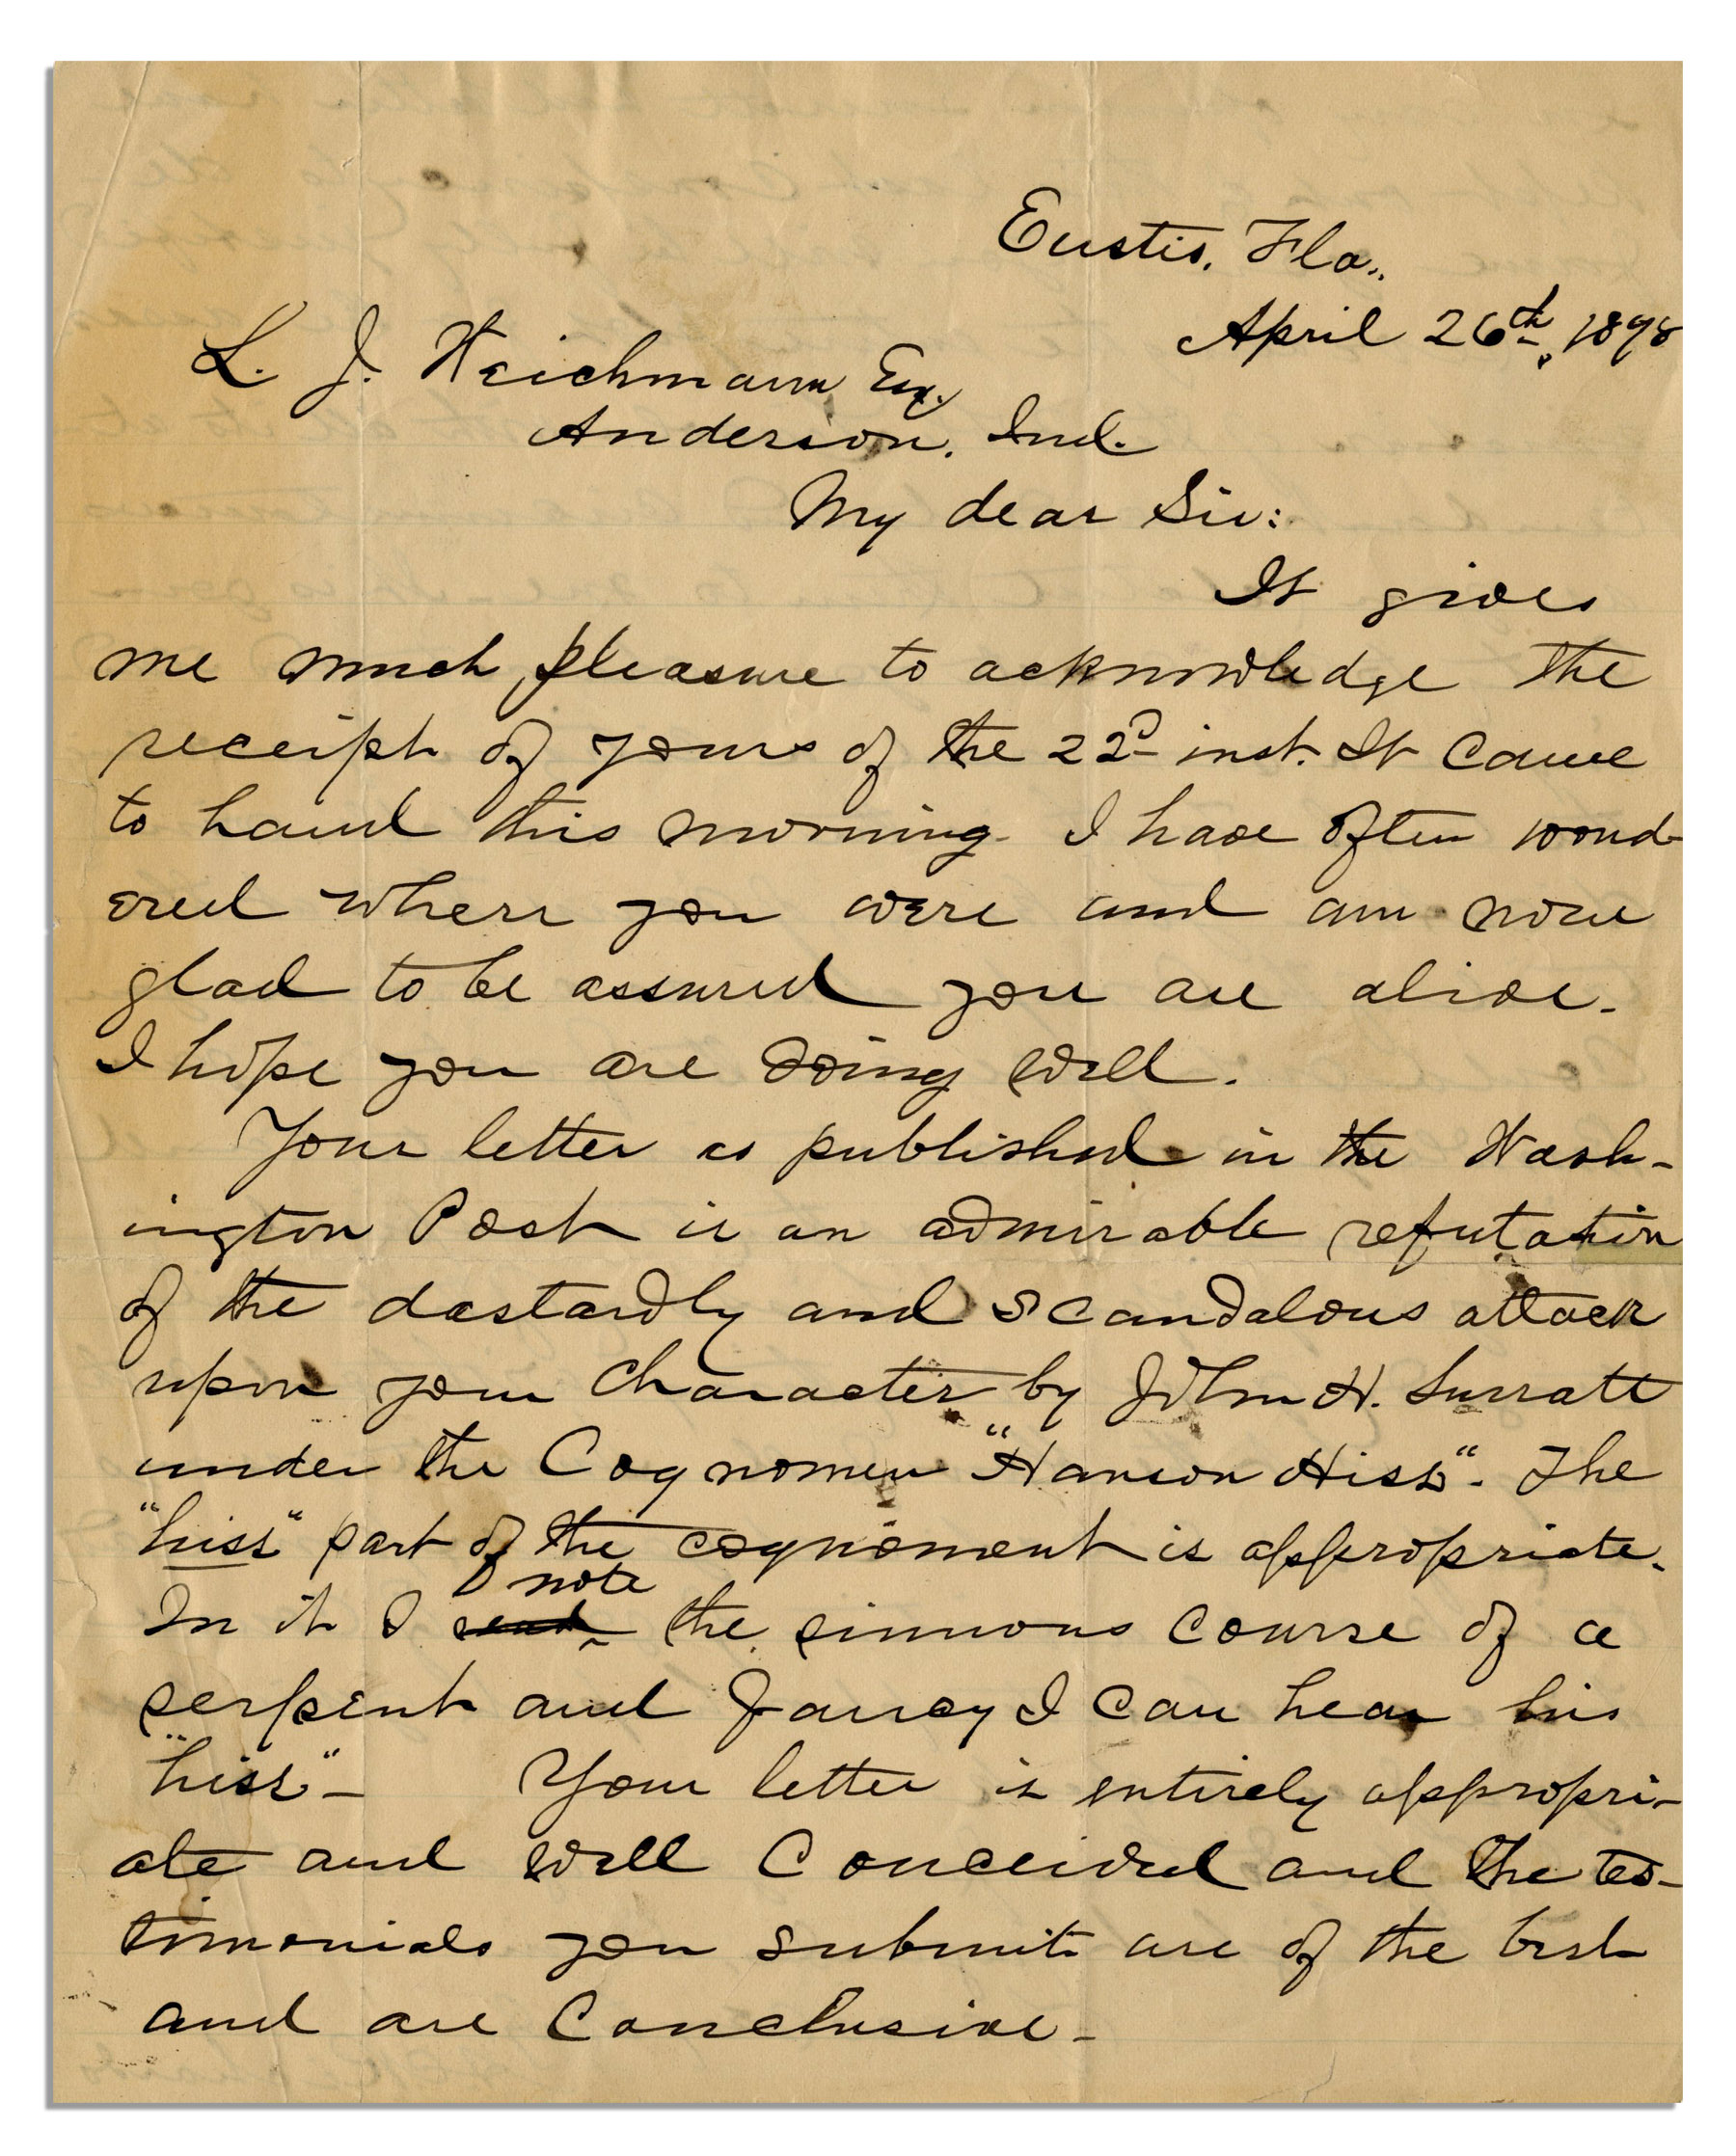 Eustis, Fla.,
April 26th, 1898
L. J. Weichmann Esq.
Anderson, Ind.
My dear Sir:
It gives
me much pleasure to acknowledge the
receipt of yours of the 22d inst. It came
to hand this morning. I have often wond-
ered where you were and am now
glad to be assured you are alive.
I hope you are doing well.
Your letter as published in the Wash-
ington Post is an admirable refutation
of the dastardly and scandalous attack
upon your character by John H. Surratt
under the Cognomen "Hanson Hiss". The
"hiss" part of the cognoment is appropriate.
note
In it I the sinuous course of a
serpent and fancy I can hear his
"hiss" - Your letter is entirely appropri-
ate and well conceived and the tes-
timonials you submit are of the best
and are conclusive -